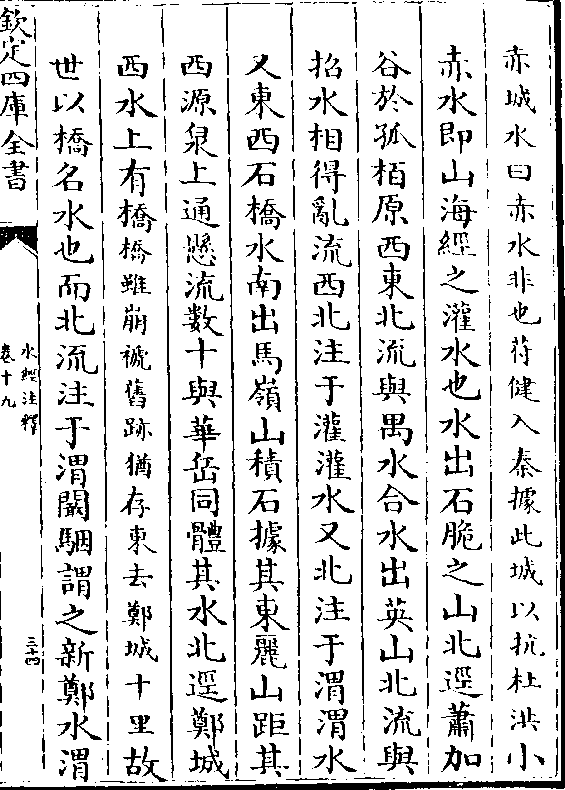 赤城水曰赤水非也苻健入秦據此城以抗杜洪小
赤水即山海經之灌水也水出石脆之山北逕蕭加
谷於孤栢原西東北流與禺水合水出英山北流與
招水相得亂流西北注于灌灌水又北注于渭渭水
又東西石橋水南出馬嶺山積石據其東麗山距其
西源泉上通懸流數十與華岳同體其水北逕鄭城
西水上有橋橋雖崩褫舊跡猶存東去鄭城十里故
世以橋名水也而北流注于渭闞駰謂之新鄭水渭
欽定四庫全書
水經注釋
卷十九
三十四